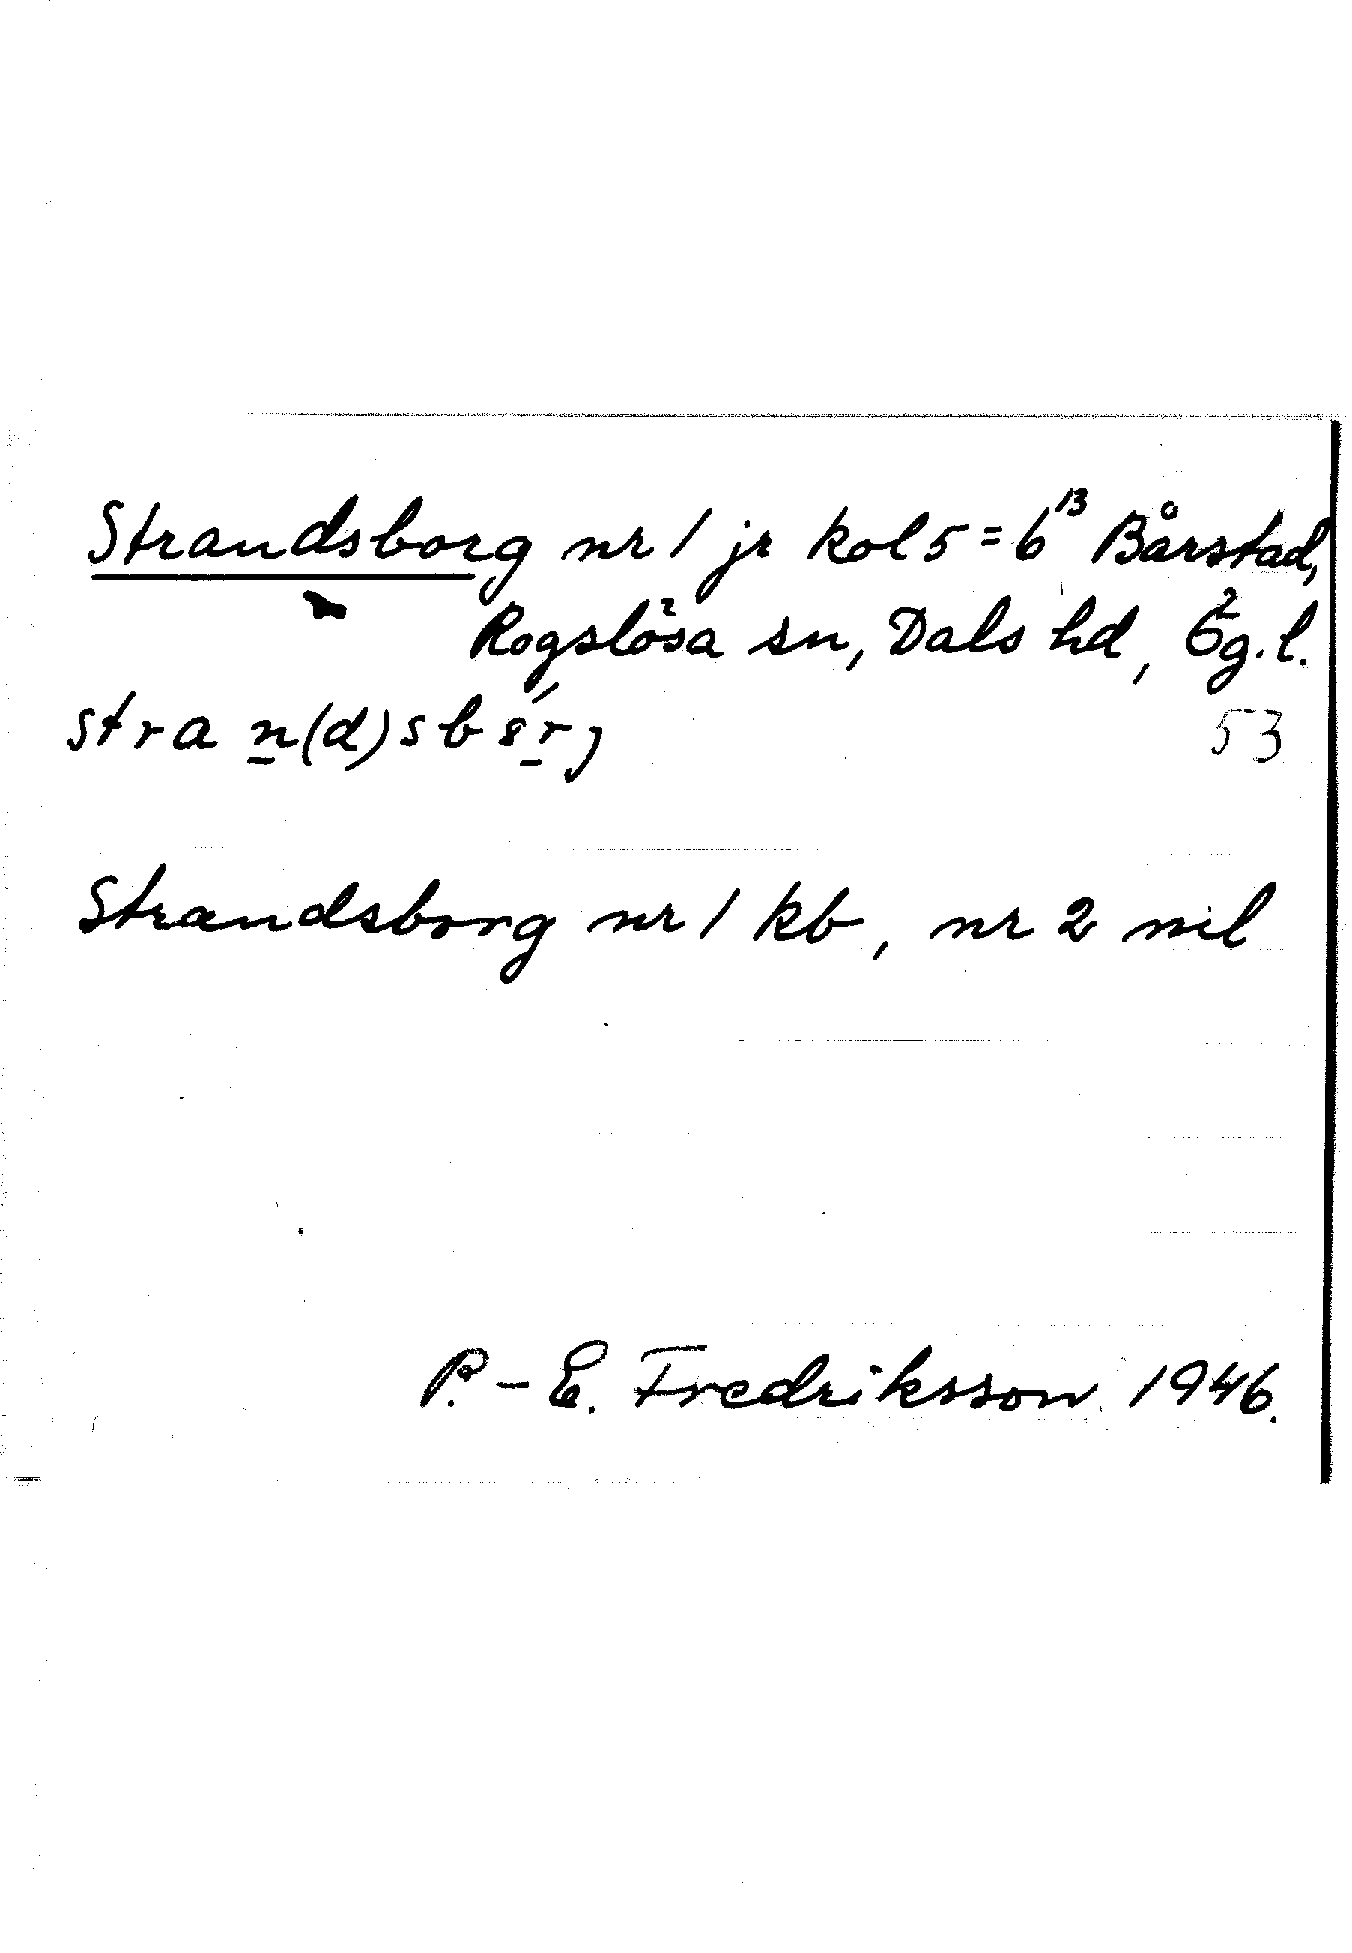 Strandsborg nr 1 jr kol 5 = 6¹³ Bårstad,
Rogslösa sn, Dals hd, Ög. l.
stra n(d)sbȣ́rj 53
Strandsborg nr 1 kb, nr 2 nil
P.-E. Fredriksson 1946.